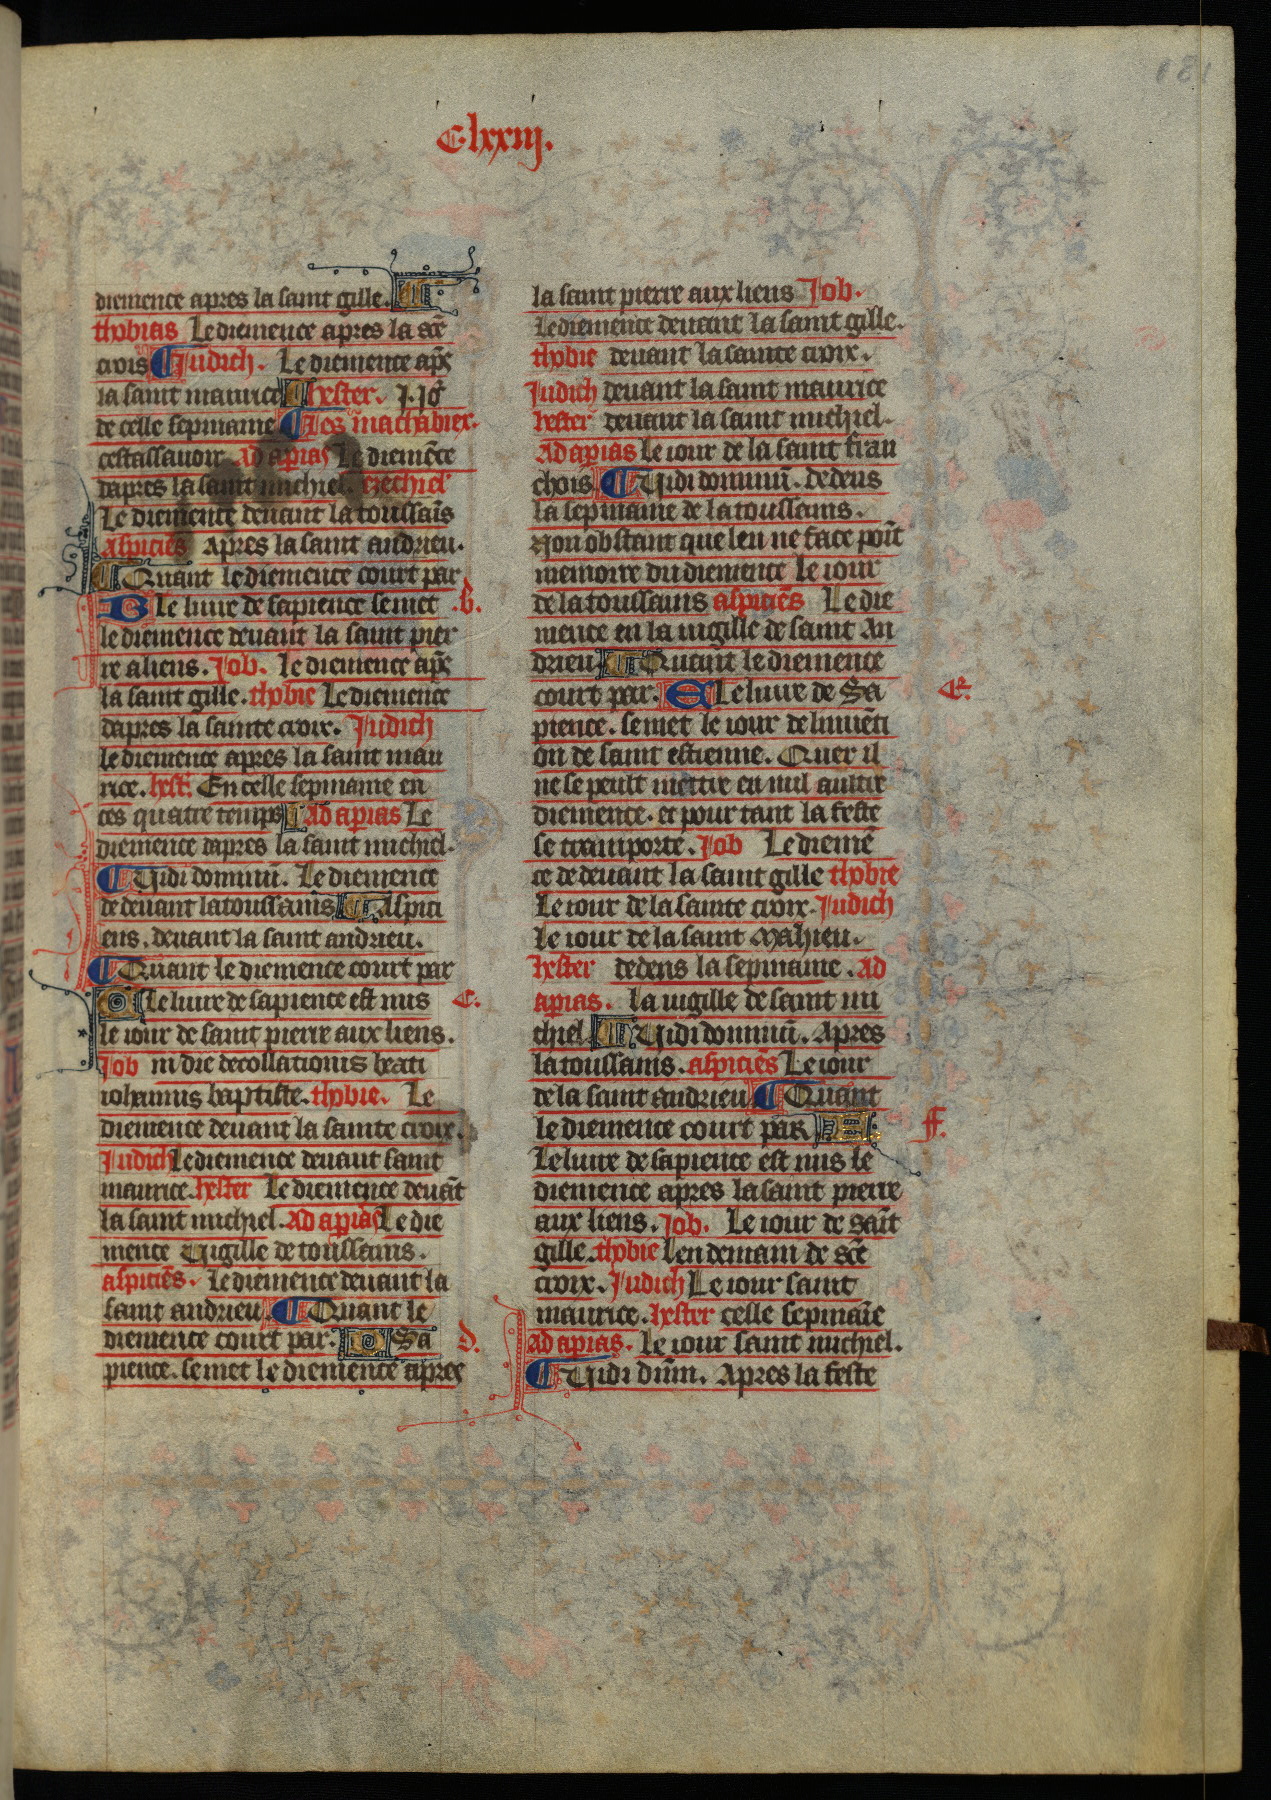 C·lxxiij.
diemence apres la saint gille.
thobias Le diemence apres la sce
crois Judich. Le diemence apš
la saint maurice hester. J. jor
de celle sepmaine Les machabiex.
cestassauoir Ad apias Le diemēce
dapres la saint michiel. ezechiel
Le diemence deuant la toussaīs
Aspiciēs Apres la saint andrieu.
Quant le diemence court par
B Le liure de sapience se met .b.
le diemence deuant la saint pier
re aliens. Job. le diemence apš
la saint gille. thobie Le diemence
dapres la sainte croix. Judich
le diemence apres la saint mau
rice. hest. En celle sepmaine en
ces quatre temps Ad apias Le
diemence dapres la saint michiel.
Uidi dominū. Le diemence
de deuant la toussains Aspici
ens. deuant la saint andrieu.
Quant le diemence court par
Le liure de sapience est mis C.
le iour de saint pierre aux liens.
Job in die decollationis beati
iohannis baptiste. thobie. Le
diemence deuant la sainte croix.
Judich Le diemence deuant saint
maurice. hester Le diemence deuāt
la saint michiel. Ad apias Le die
mence Uigille de toussains.
aspiciēs. le diemence deuant la
saint andrieu. Quant le
diemence court par. Sa D.
pience. se met le diemence apres
la saint pierre aux liens Job.
Le diemence deuant la saint gille.
thobie deuant la sainte croix.
Judich deuant la saint maurice
hester deuant la saint michiel.
Ad apias Le iour de la saint fran
chois Uidi dominū. dedens
la sepmaine de la toussains.
Non obstant que len ne face poīt
memoire du diemence le iour
de la toussains aspiciēs Le die
mence en la uigille de saint An
drieu Quant le diemence
court par. E Le liure de Sa e.
pience. se met le iour de linuēti
on de saint estienne. Quer il
ne se peult mettre en nul aultre
diemence. et pour tant la feste
se transporte. Job Le diemē
ce de deuant la saint gille thobie
Le iour de la sainte croix. Judich
Le iour de la saint Mahieu.
hester dedens la sepmaine. Ad
apias. la uigille de saint mi
chiel Uidi dominū. Apres
la toussains. aspiciēs Le iour
de la saint andrieu Quant
le diemence court par ff.
Le liure de sapience est mis le
diemence apres la saint pierre
aux liens. Job. Le iour de saīt
gille. thobie len demain de sce
croix. Judich Le iour saint
maurice. hester celle sepmaīe
Ad apias. Le iour saint michiel.
Uidi dnm̄. Apres la feste